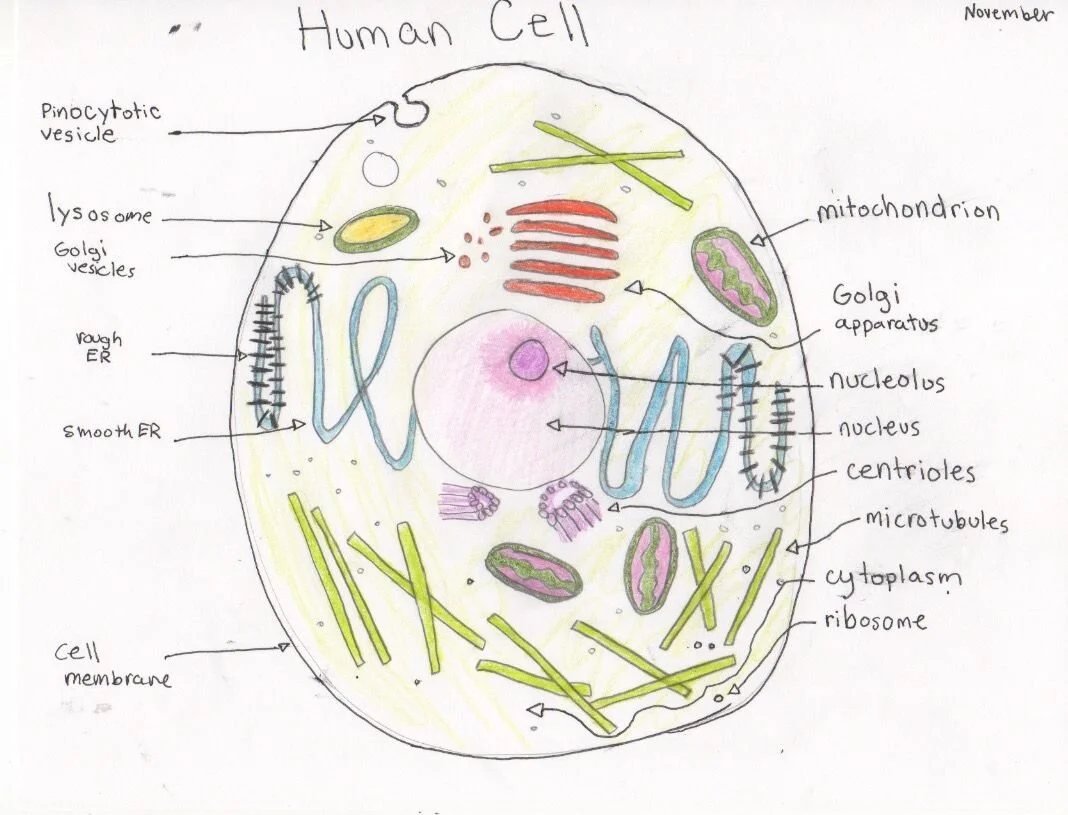 Human Cell
November
Pinocytotic
vesicle
lysosome
Golgi
vesicles
rough
ER
smooth ER
cell
membrane
mitochondrion
Golgi
apparatus
nucleolus
nucleus
centrioles
microtubules
cytoplasm
ribosome